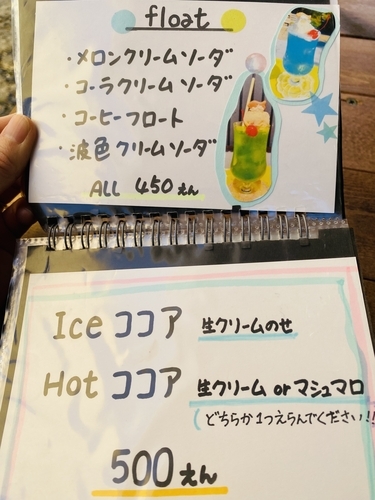 float
・メロンクリームソーダ
・コーラクリームソーダ
・コーヒーフロート
・波色クリームソーダ
ALL 450えん
Ice ココア 生クリームのせ
Hot ココア 生クリーム or マシュマロ
(どちらか1つえらんでください!!
500えん